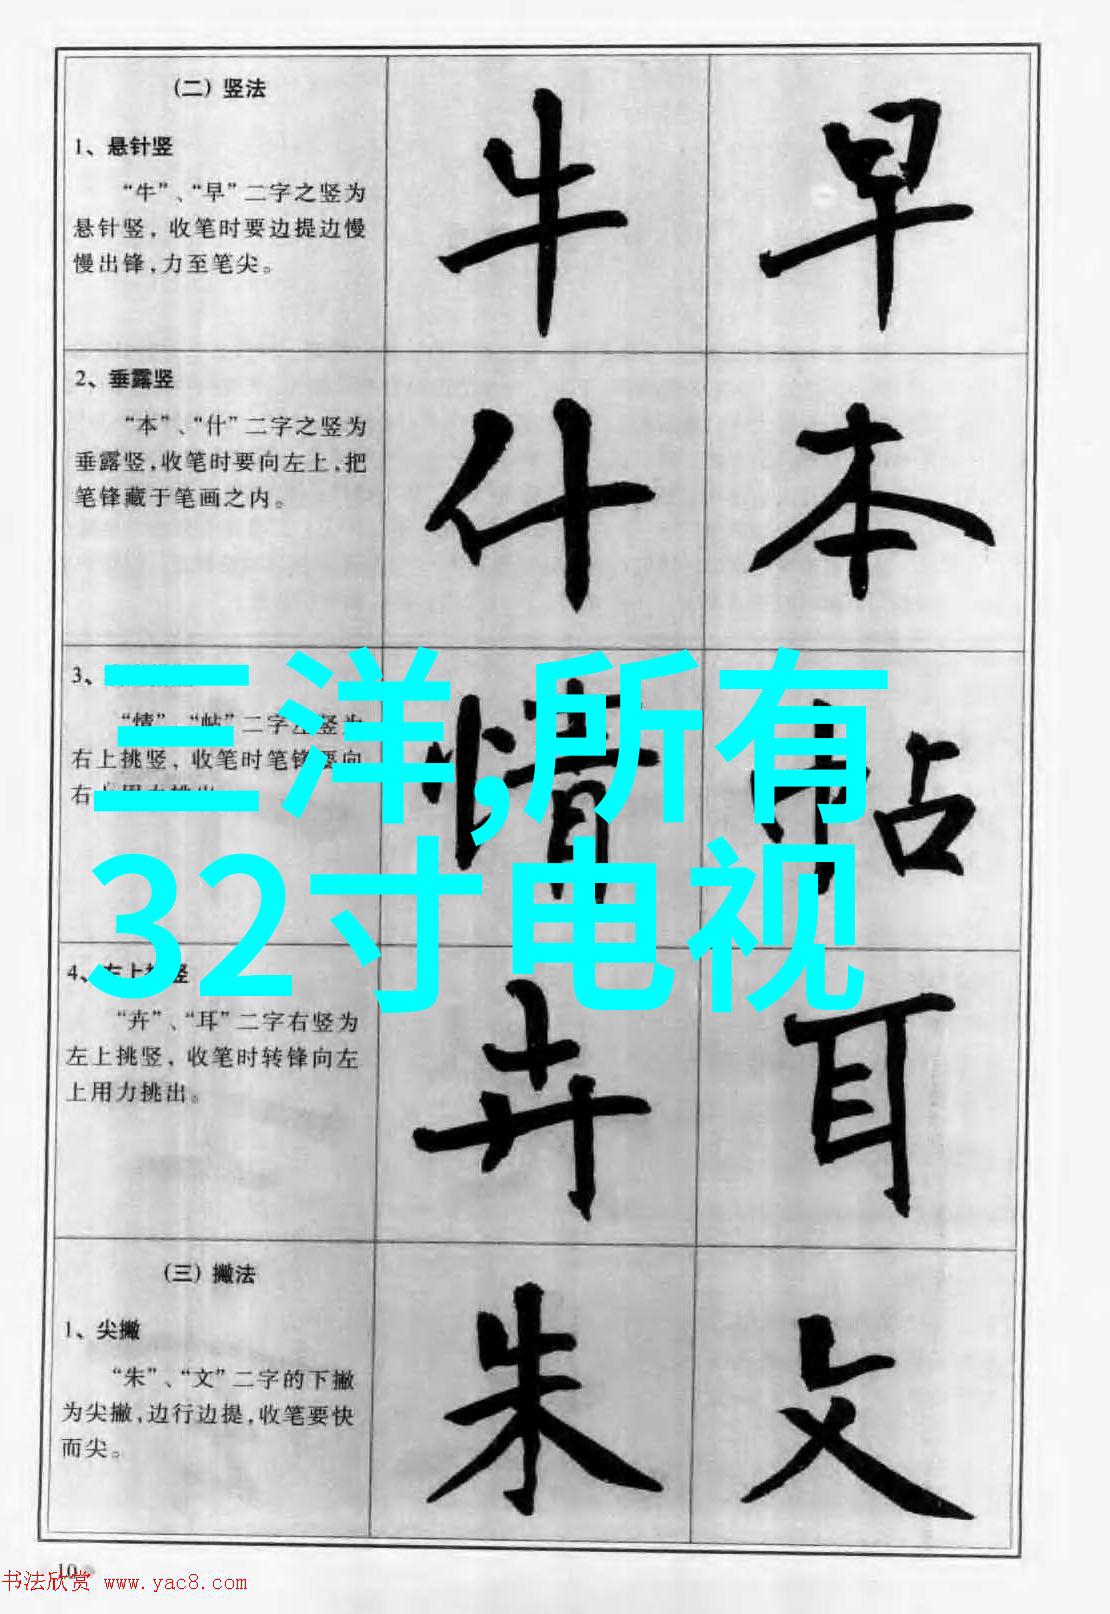 (二) 竖法
1、悬针竖
“牛”、“早”二字之竖为
悬针竖, 收笔时要边提边慢
慢出锋,力至笔尖。
牛 早
2、垂露竖
“本”、“什”二字之竖为
垂露竖,收笔时要向左上,把
笔锋藏于笔画之内。
什 本
3、
“情”、“帖”二字左竖为
右上挑竖, 收笔时笔锋要向
右
情 帖
三洋,所有
32寸电视
4、左上挑竖
“卉”、“耳”二字右竖为
左上挑竖, 收笔时转锋向左
上用力挑出。
卉 耳
(三) 撇法
1、尖撇
“朱”、“文”二字的下撇
为尖撇,边行边提,收笔要快
而尖。
朱 文
10
书法欣赏 www.yac8.com